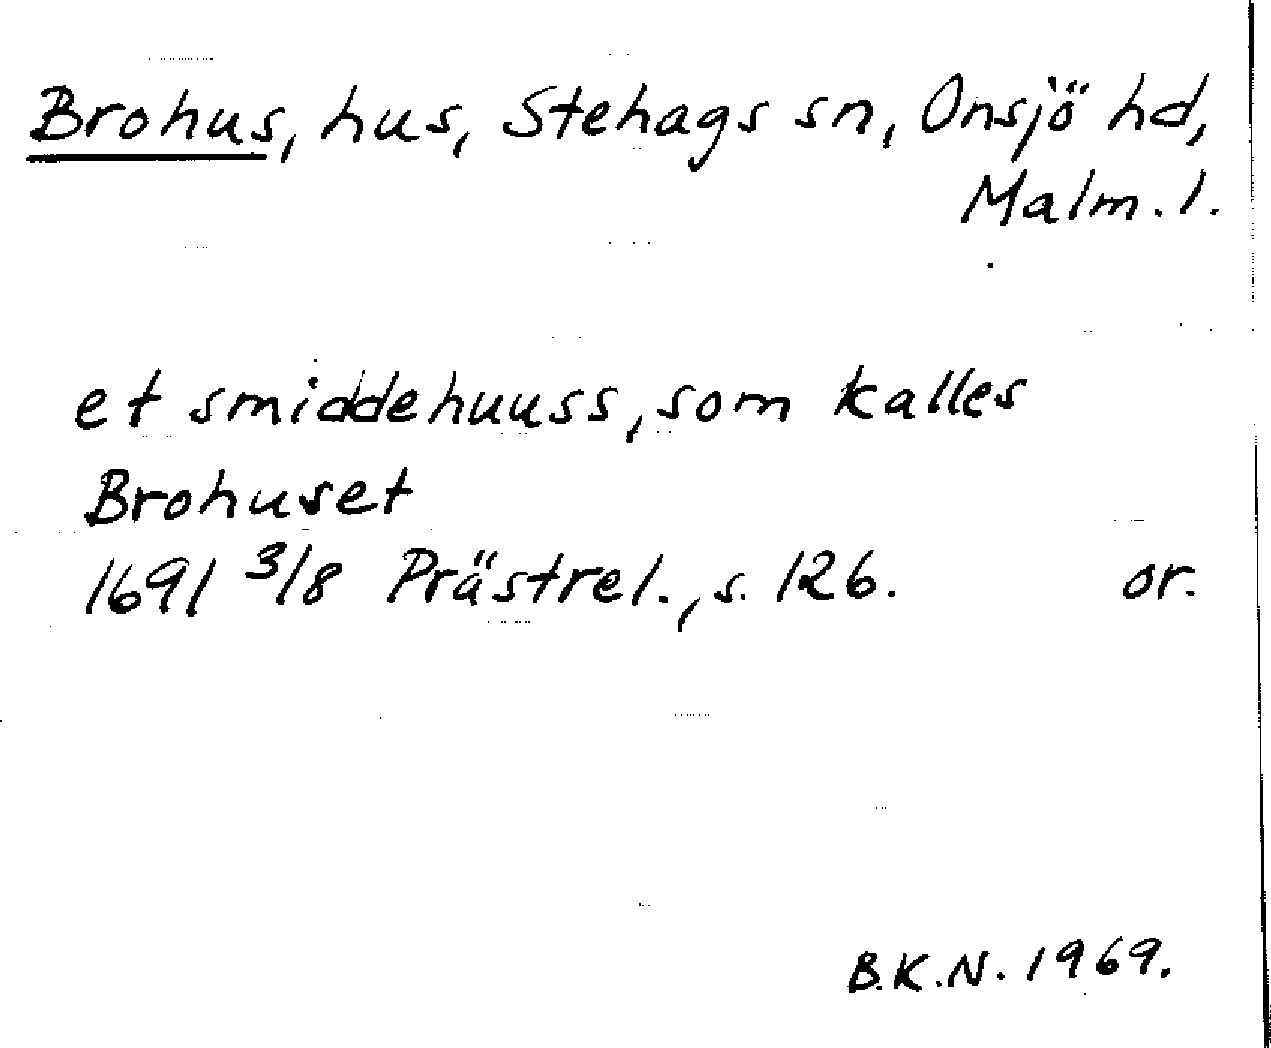 Brohus, hus, Stehags sn, Onsjö hd,
Malm. l.
et smiddehuuss, som kalles
Brohuset
1691 3/8 Prästrel., s. 126. or.
B.K.N. 1969.